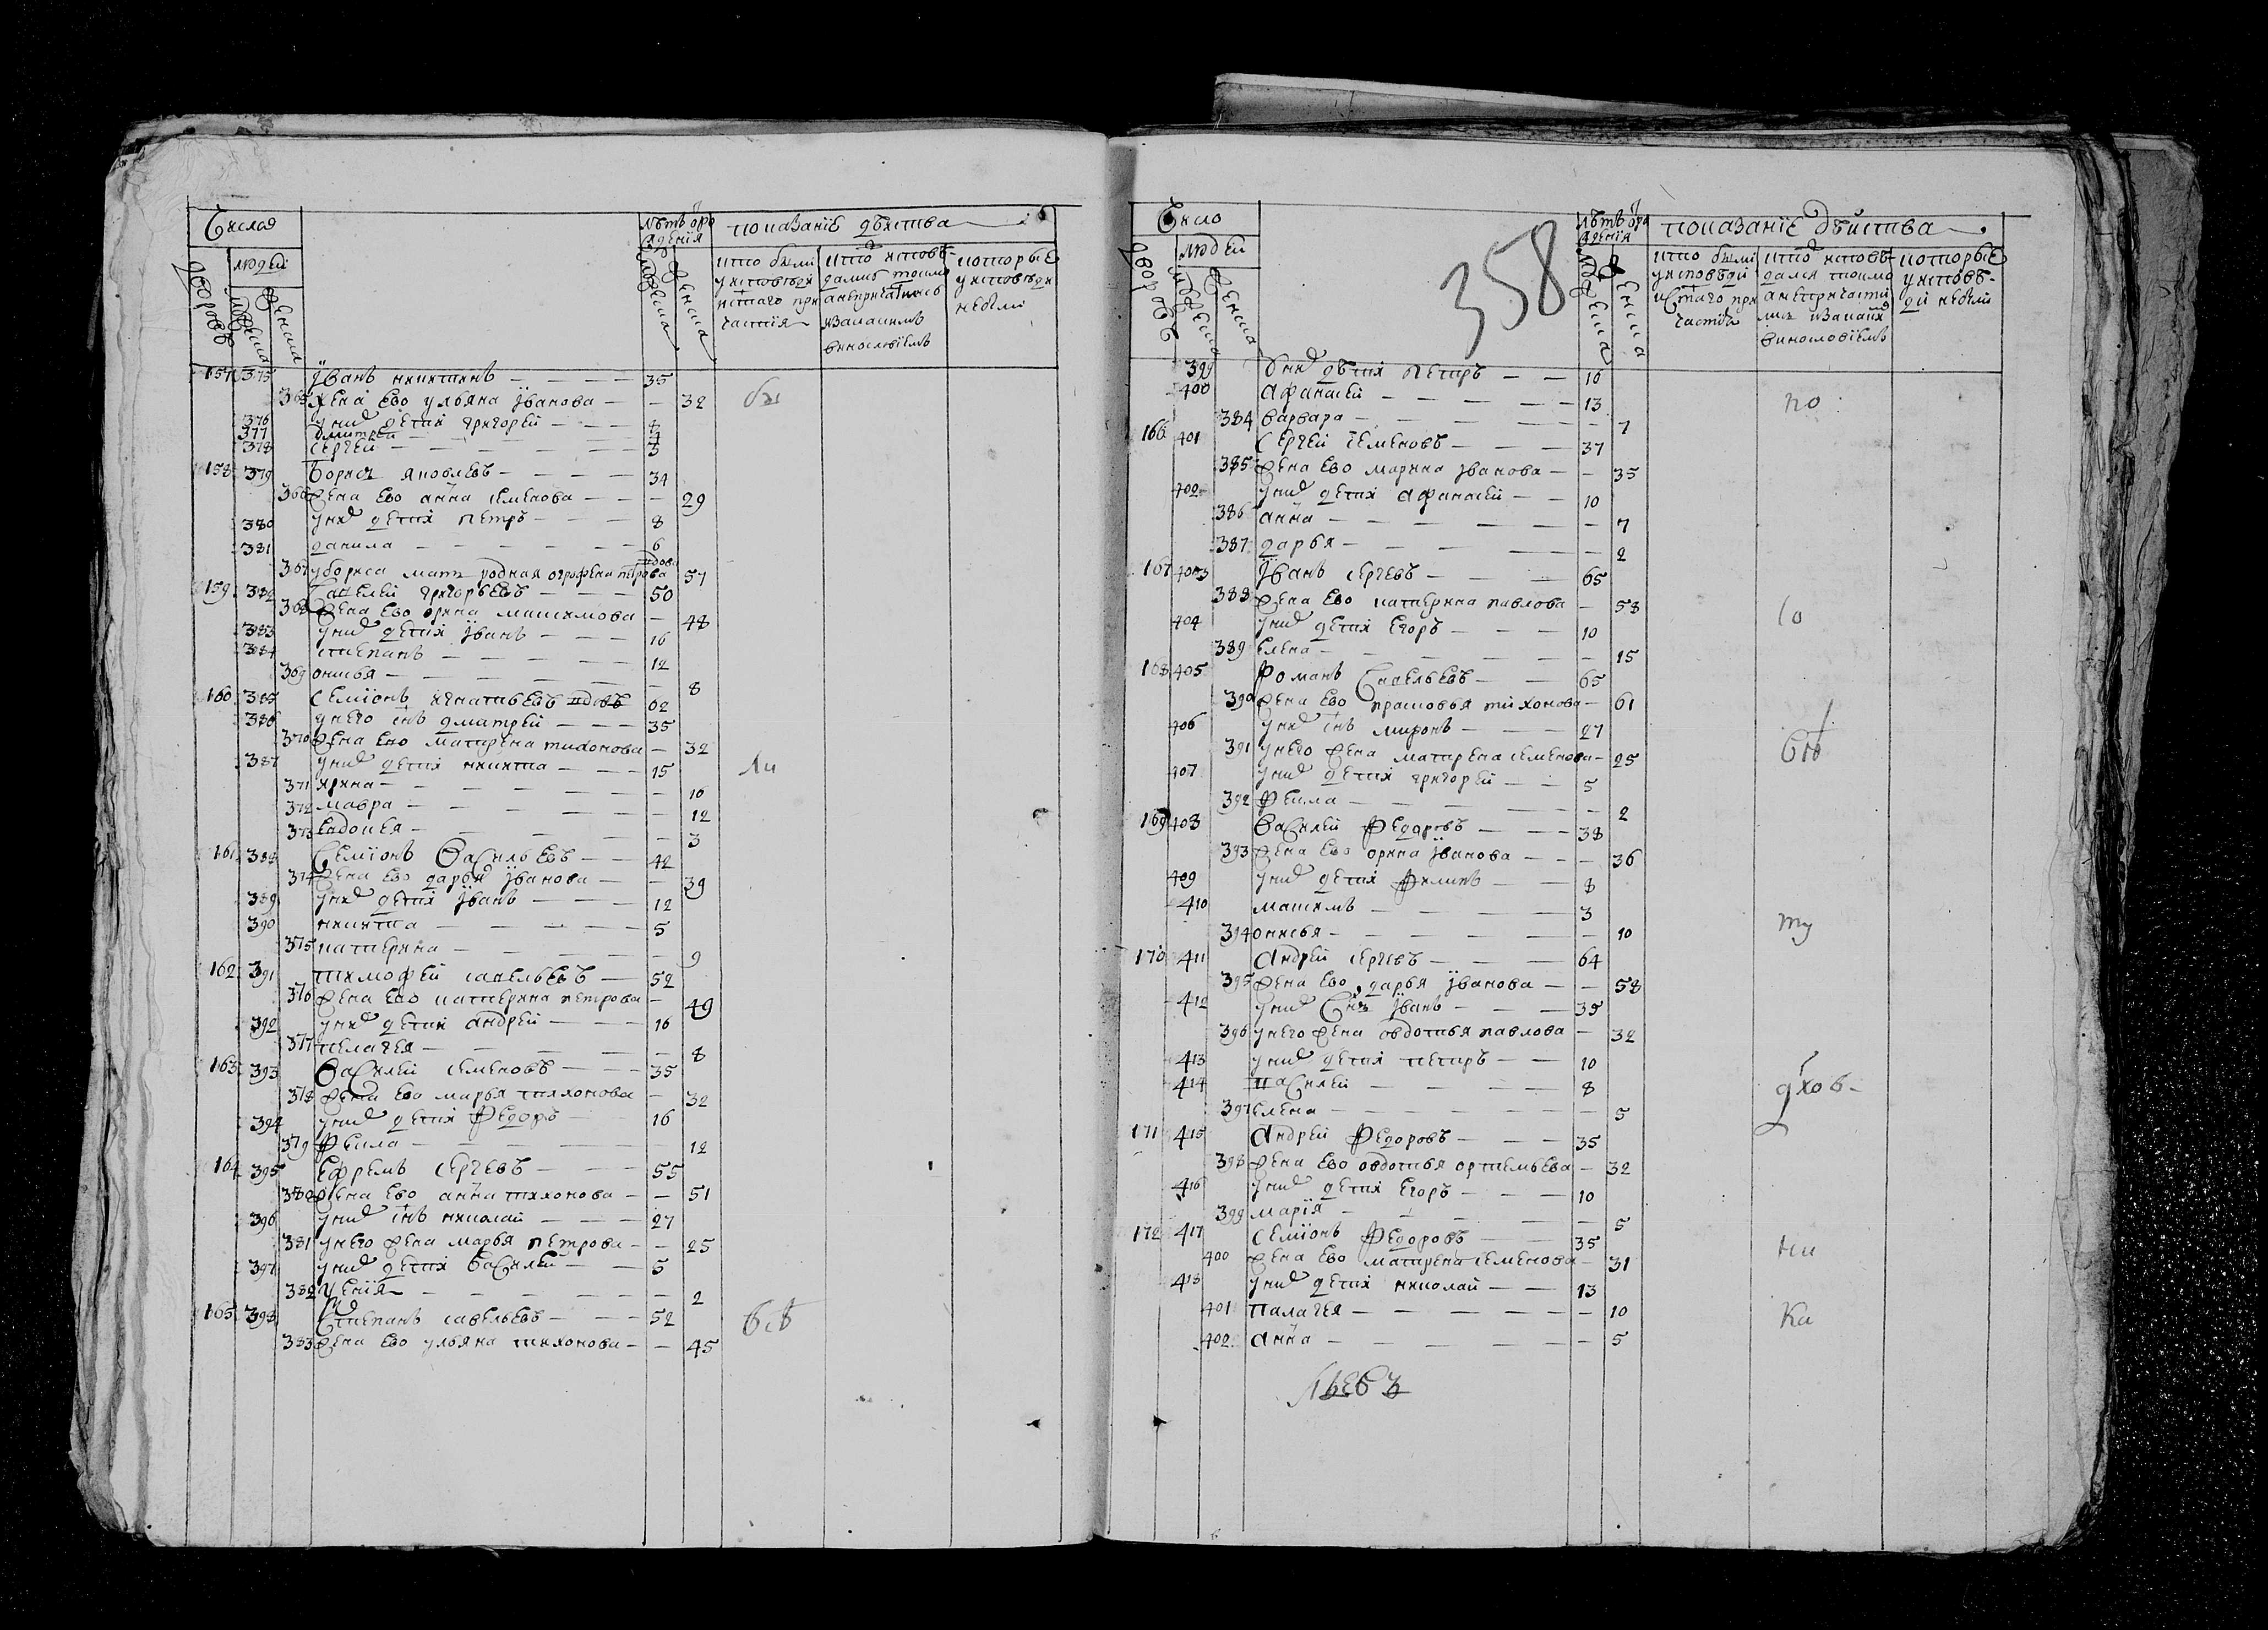 Числа
людей
дворовъ
мужеска
женска
лѣтъ о рожденія
мужеска
женска
показаніе дѣиства
кто были
у исповѣди
и с~таго при
частія
кто исповѣ
дались токмо
а непричастились
и за какимъ
винословіемъ
которые
у исповѣди
небыли
157 375 Їванъ никитинъ 35
365 жена ево ульяна їванова 32
376 у них дети григорей 8
377 дмитрей
378 сергей 3
158 379 борисъ яковлевъ 34
366 жена ево анна семенова 29
380 у них дети петръ 8
381 данила 6
367 у бориса мать родная огрофена петрова вдова 57
159 382 савелей григорьевъ 50
368 жена ево орина максимова 48
383 у них дети їванъ 16
384 степанъ 12
369 онисья 8
160 385 семїонъ игнатьевъ вдовъ 62
386 у него с~нъ дматрей 35
370 жена ево матрена тихонова 32
387 у них дети никита 15
371 ирина 16
372 мавра 12
373 евдокея 3
161 388 семїонъ василь евъ 42
374 жена ево дарья їванова 39
389 у них дети їванъ 12
390 никита 5
375 катерина 9
162 391 тимофей савельевъ 52
376 жена ево катерина петрова 49
392 у них дети андрей 16
377 пелагея 8
163 393 василей семеновъ 35
378 жена ево марья тихонова 32
394 у них дети федоръ 16
379 фекла 12
164 395 ефремъ сергевъ 55
380 жена ево анна тихонова 51
396 у них с~нъ николай 27
381 у него жена марья петрова 25
397 у них дети василей 5
382 ксенїя 2
165 398 степанъ савельевъ 52
383 жена ево ульяна тихонова 45
бы
ли
всѣ
Число
людей
дворовъ
мужеска
женска
358
лѣтъ о рожденія
мужеска
женска
показаніе дѣйства
кто были
у исповѣди
и с~таго при
частія
кто исповѣ
дался токмо
а непричасти
лись и за какимъ
винословіемъ
которые
у исповѣ-
ди небыли
399 у них дѣти петръ 16
400 афанасей 13
384 варвара 7
166 401 сергей семеновъ 37
385 жена ево марина їванова 35
402 у них дети афанасей 10
386 анна 7
387 дарья 2
167 403 їванъ сергевъ 65
388 жена ево катерина павлова 58
404 у них дети егоръ 10
389 елена 15
168 405 романъ савельевъ 65
390 жена ево прасковья тихонова 61
406 у них с~нъ миронъ 27
391 у него жена матрена семенова 25
407 у них дети григорей 5
392 фекла 2
169 408 василей федоровъ 38
393 жена ево орина їванова 36
409 у них дети филипъ 8
410 максимъ 3
394 онисья 10
170 411 андрей сергевъ 64
395 жена ево дарья їванова 58
412 у них с~нъ їванъ 35
396 у него жена овдотья павлова 32
413 у них дети петръ 10
414 василей 8
397 елена 5
171 415 андрей федоровъ 35
398 жена ево овдотья ортемьева 32
416 у них дети егоръ 10
399 марїя 5
172 417 семїонъ федоровъ 35
400 жена ево матрена семенова 31
418 у них дети николай 13
401 палагея 10
402 анна 5
по
со
бѣ
ту
дхов-
ни
ка